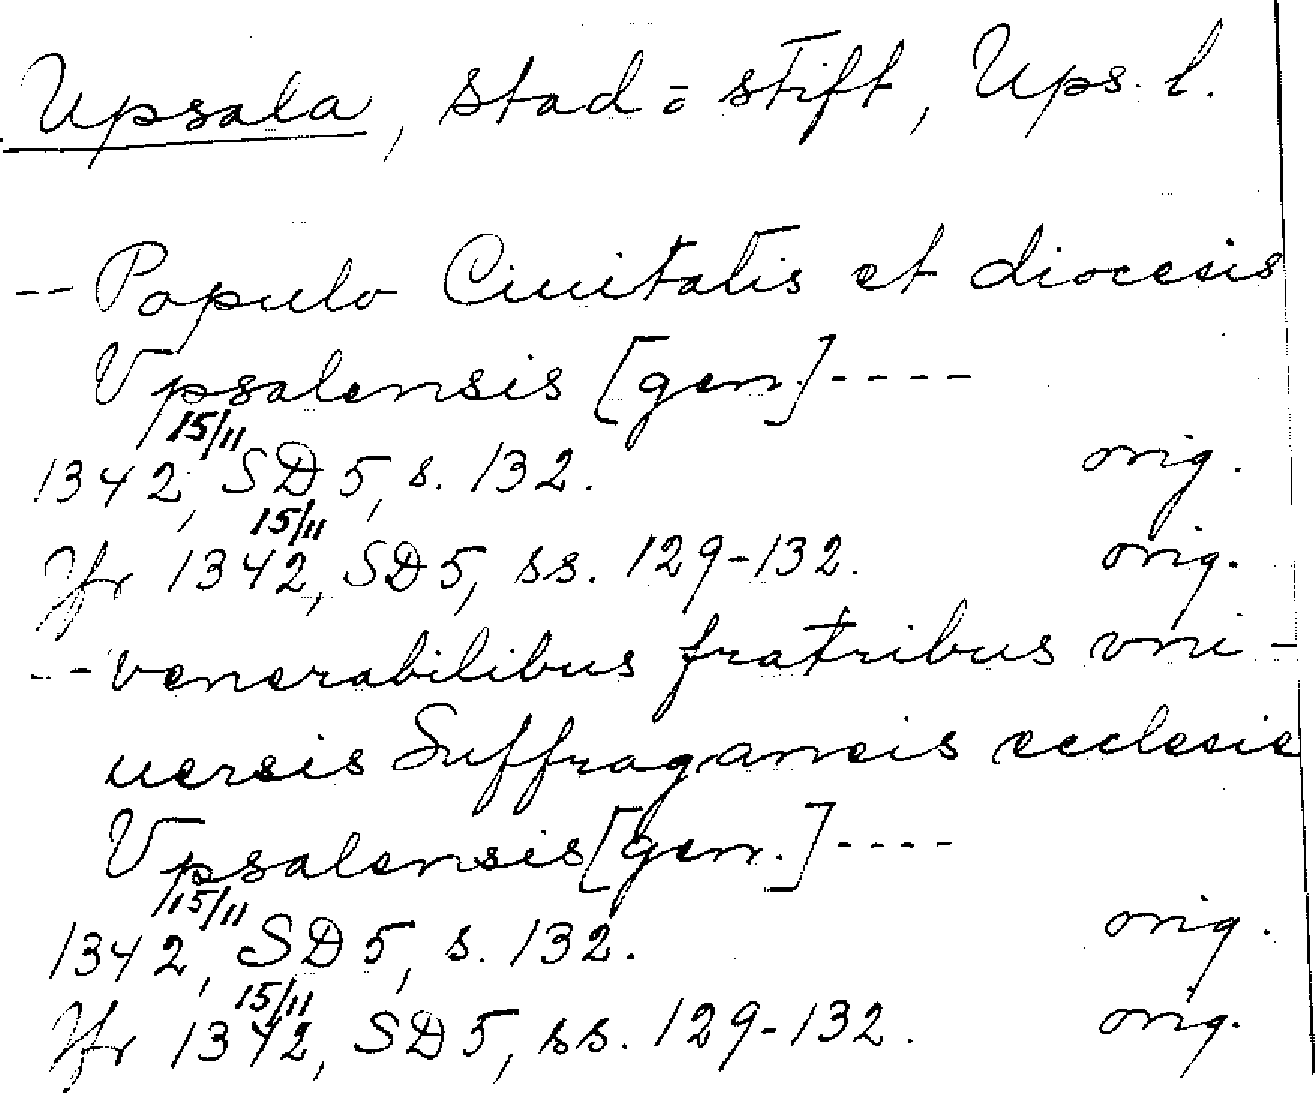 Upsala, stad o. stift, Ups. l.
-- Populo Ciuitatis et diocesis
Vpsalensis [gen.] ----
1342 15/11, SD 5, s. 132. orig.
Jfr 1342 15/11, SD 5, ss. 129-132. orig.
-- venerabilibus fratribus vni-
uersis Suffraganeis ecclesie
Vpsalensis [gen.] ----
1342 15/11, SD 5, s. 132. orig.
Jfr 1342 15/11, SD 5, ss. 129-132. orig.